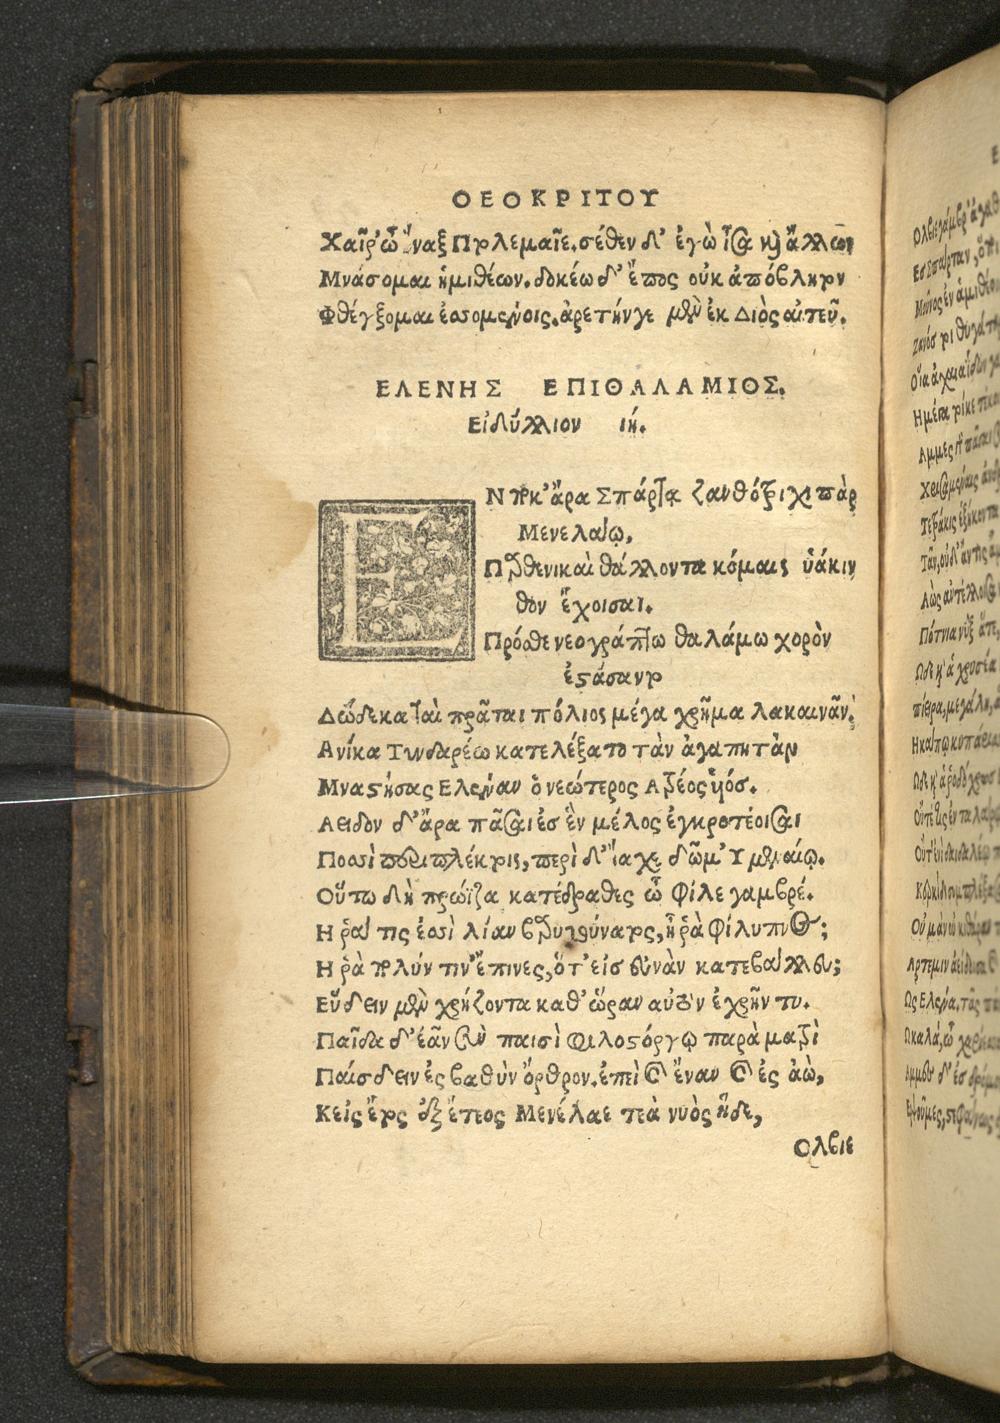 ΘΕΟΚΡΙΤΟΥ
Χαῖρ' ὦ ἄναξ Πτολεμαῖε. σέθεν δ' ἐγὼ ἶσα καὶ ἄλλων
Μνάσομαι ἡμιθέων. δοκέω δ' ἔπος οὐκ ἀπόβλητον
Φθέγξομαι ἐσσομένοις. ἀρετήν γε μὲν ἐκ Διὸς αἰτεῦ.
ΕΛΕΝΗΣ ΕΠΙΘΑΛΑΜΙΟΣ.
Εἰδύλλιον ιή.
ΕΝ ποκ' ἄρα Σπάρτᾳ ξανθότριχι πὰρ
Μενελάῳ,
Παρθενικαὶ θάλλοντα κόμαις ὑάκιν
θον ἔχοισαι.
Πρόσθε νεογράπτω θαλάμω χορὸν
ἐστάσαντο
Δώδεκα ταὶ πρᾶται πόλιος μέγα χρῆμα λακαινᾶν.
Ανίκα Τυνδαρέω κατελέξατο τὰν ἀγαπητὰν
Μναστήσας Ελέναν ὁ νεώτερος Ατρέος ὑιός.
Αειδον δ' ἄρα πᾶσαι ἐσ ἓν μέλος ἐγκροτέοισαι
Ποσσὶ περιπλέκτοις, περὶ δ' ἴαχε δῶμ' Υμεναίῳ.
Οὕτω δὴ πρώϊζα κατέδραθες ὦ φίλε γαμβρέ.
Η ῥά τις ἐσσὶ λίαν βαρυγούνατος, ἢ ῥὰ φίλυπνος;
Η ῥὰ πολύν τιν' ἔπινες, ὅτ' εἰσ εὐνὰν κατεβάλλευ;
Εὕδειν μὲν χρήζοντα καθ' ὥραν αὐτὸν ἐχρῆν τυ.
Παῖδα δ' ἐᾶν σὺν παισὶ φιλοστόργῳ παρὰ ματρὶ
Παίσδειν ἐς βαθὺν ὄρθρον. ἐπεὶ καὶ ἔναν καὶ ἐς ἀῶ,
Κεἰς ἔτος ἐξ ἔτεος Μενέλαε τεὰ νυὸς ἥδε,
Ολβιε